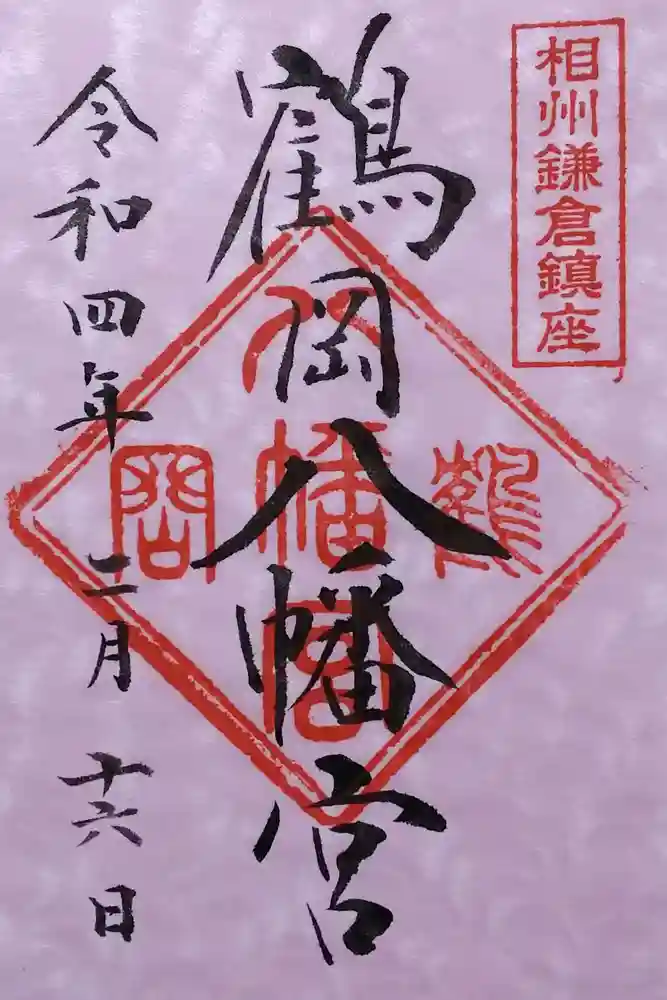 相州鎌倉鎮座
鶴岡八幡宮
鶴
岡
八幡宮
令和四年二月十六日